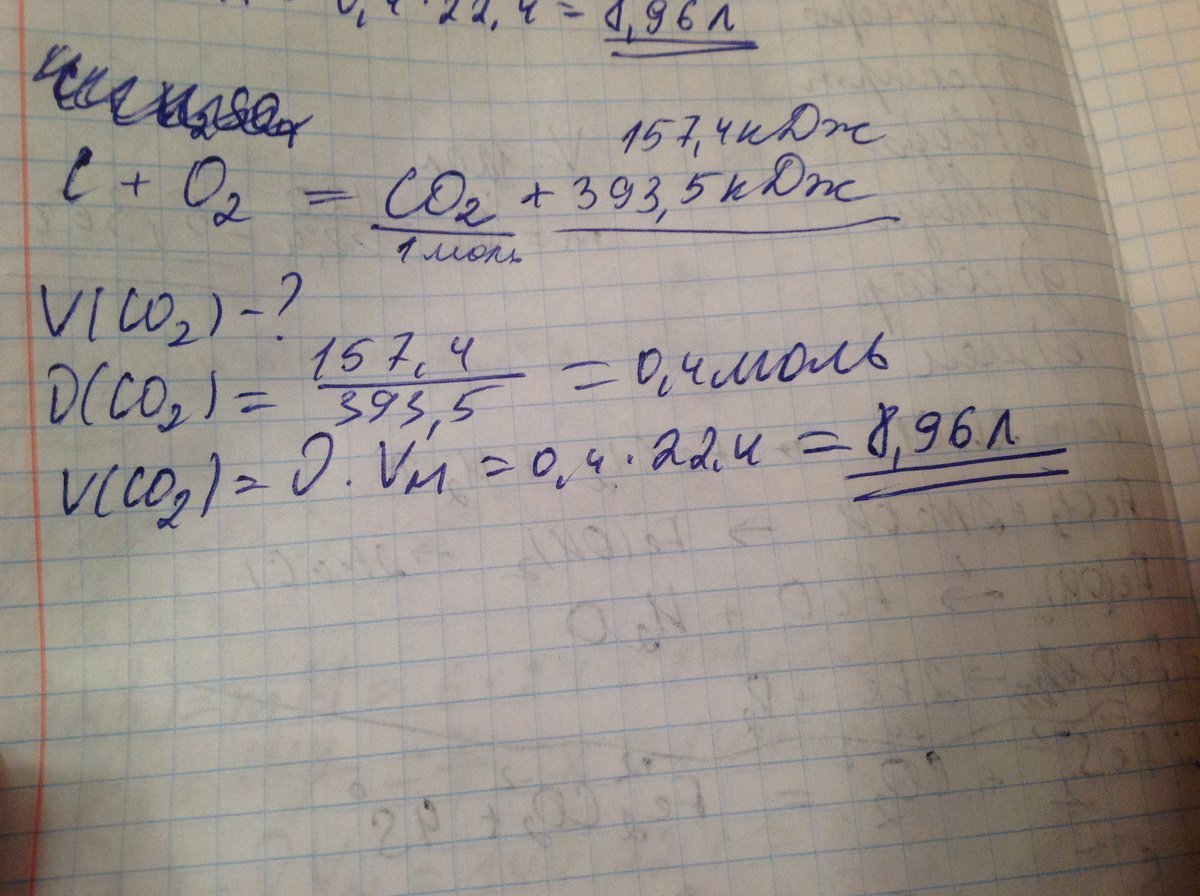 0,4 · 22,4 = 8,96 л
157,4 кДж
C + O₂ = CO₂ + 393,5 кДж
1 моль
V(CO₂) - ?
υ(CO₂) = 157,4 / 393,5 = 0,4 моль
V(CO₂) = υ · Vм = 0,4 · 22,4 = 8,96 л